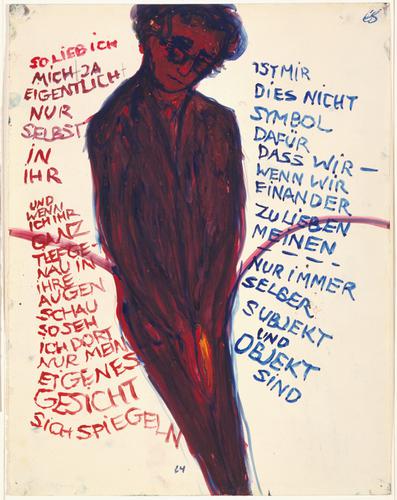 SO LIEB ICH
MICH JA
EIGENTLICH
NUR
SELBST
IN
IHR
UND
WENN
ICH IHR
GANZ
TIEFGE-
NAU IN
IHRE
AUGEN
SCHAU
SO SEH
ICH DORT
NUR MEIN
EIGENES
GESICHT
SICH SPIEGELN
IST MIR
DIES NICHT
SYMBOL
DAFÜR
DASS WIR —
WENN WIR
EINANDER
ZU LIEBEN
MEINEN
— — — —
NUR IMMER
SELBER
SUBJEKT
UND
OBJEKT
SIND